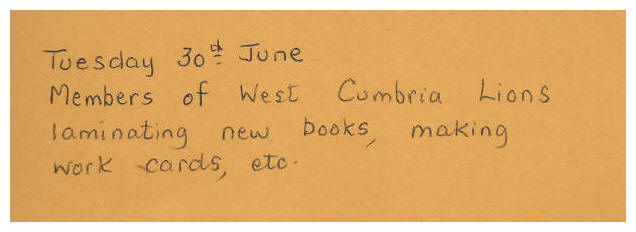 Tuesday 30th June
Members of West Cumbria Lions
laminating new books, making
work cards, etc.